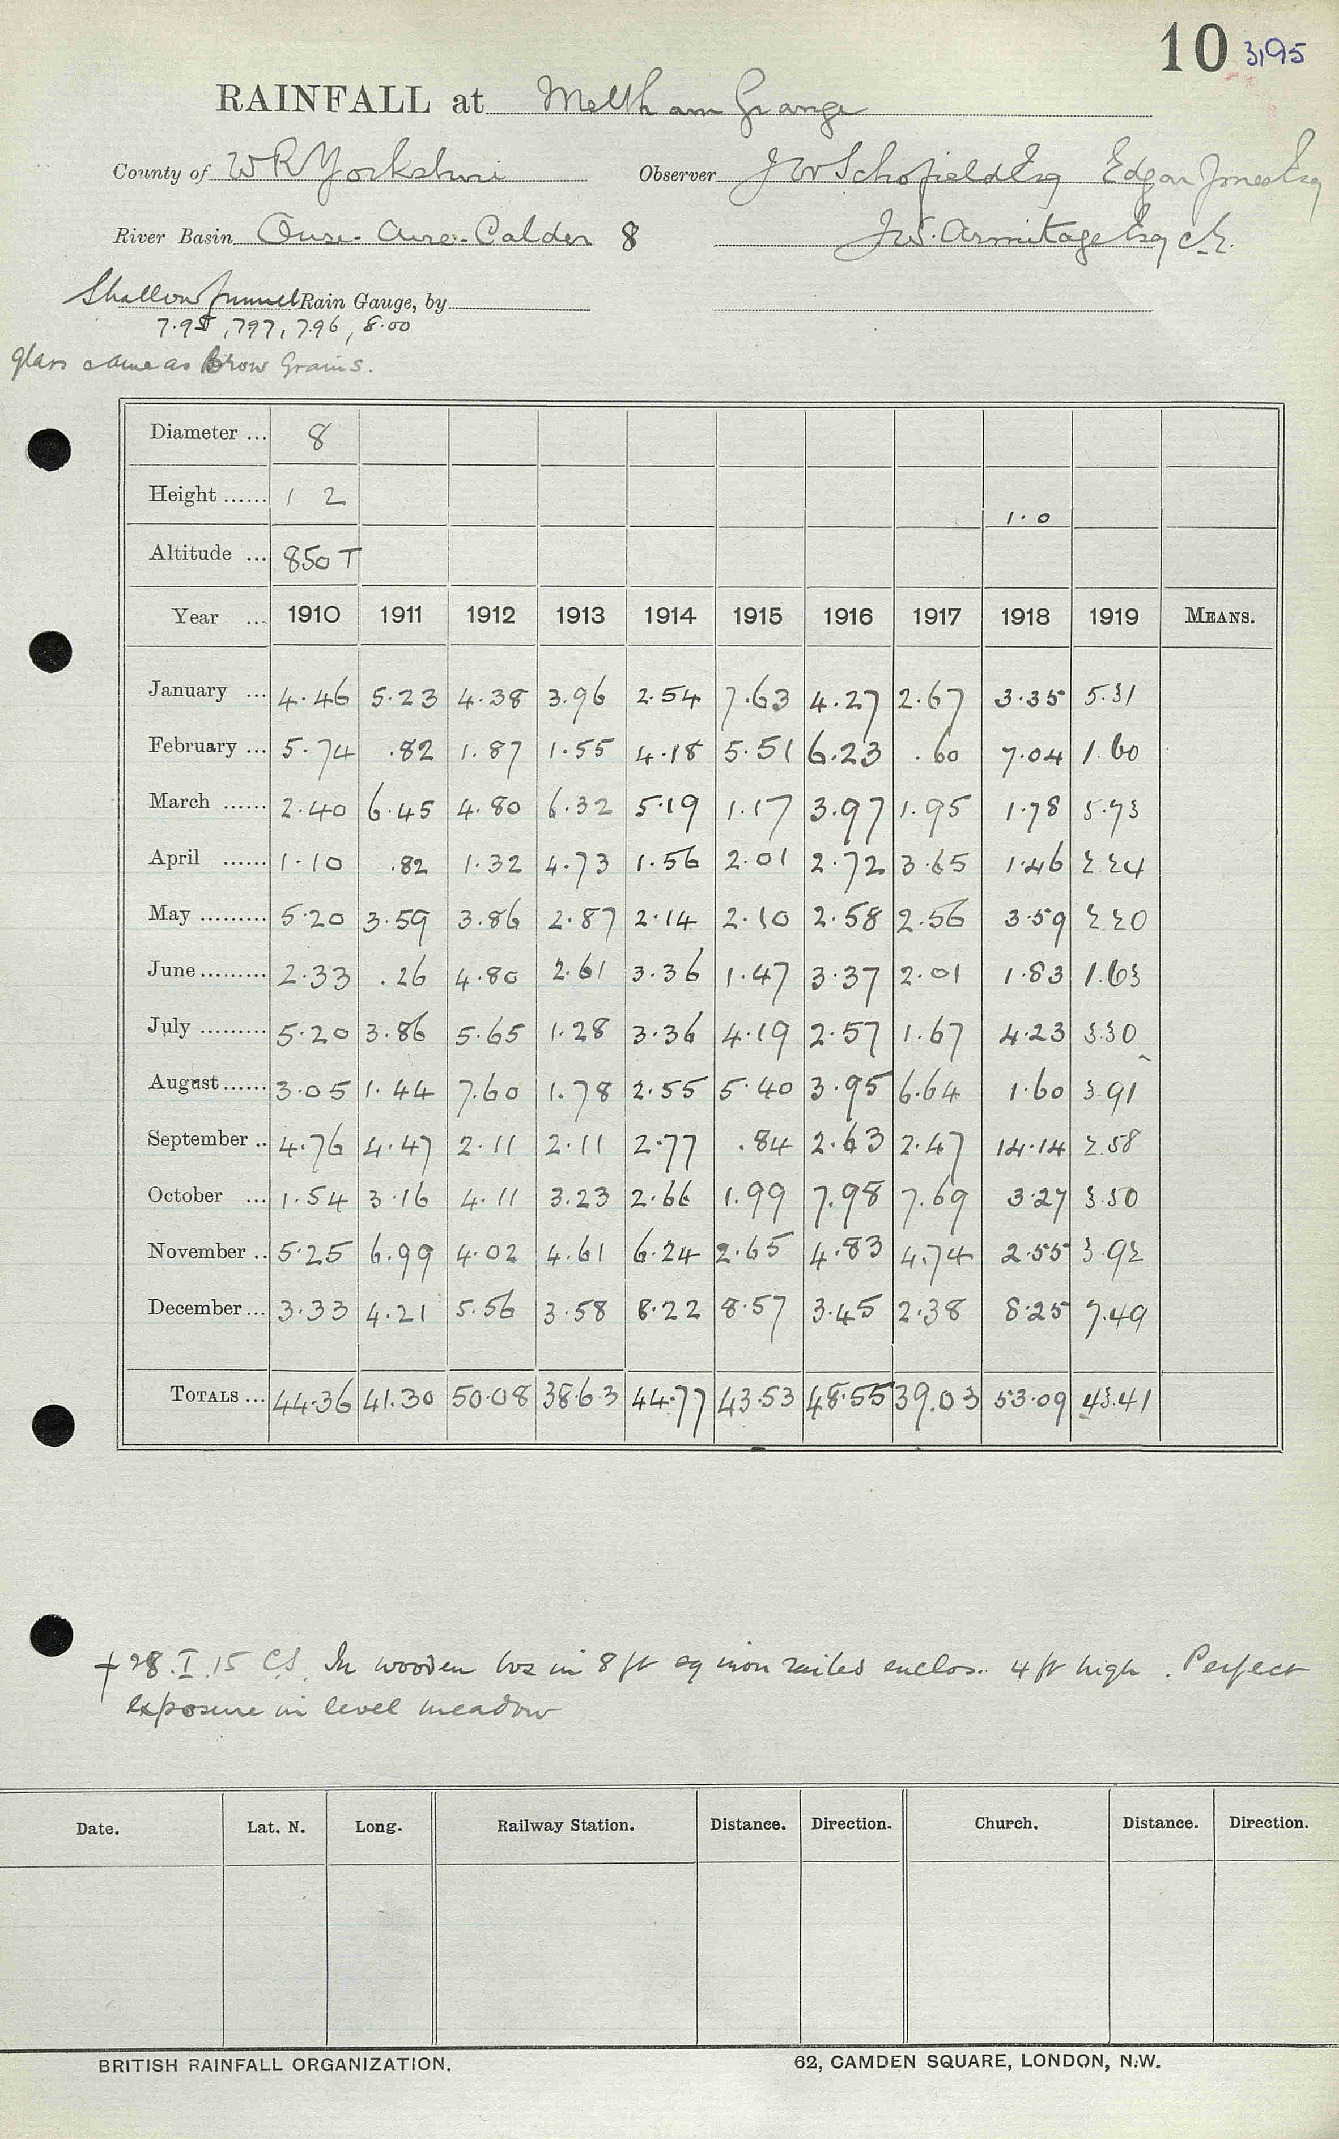 10 3195
RAINFALL at Meltham Grange
County of W R Yorkshire Observer J W Schofield Esq Edgar Jones Esq
River Basin Ouse-Aire-Calder 8 J W. Armitage Esq C.E.
Shallow funnel Rain Gauge, by
7.98, 7.97, 7.96, 8.00
glass same as Brow Grains.
Diameter ... 8
Height ...... 1 2 1.0
Altitude ... 850 T
Year ... 1910 1911 1912 1913 1914 1915 1916 1917 1918 1919 MEANS.
January ... 4.46 5.23 4.38 3.96 2.54 7.63 4.27 2.67 3.35 5.31
February ... 5.74 .82 1.87 1.55 4.18 5.51 6.23 .60 7.04 1.60
March ...... 2.40 6.45 4.80 6.32 5.19 1.17 3.97 1.95 1.78 5.73
April ...... 1.10 .82 1.32 4.73 1.56 2.01 2.72 3.65 1.46 2.24
May ......... 5.20 3.59 3.86 2.87 2.14 2.10 2.58 2.56 3.59 2.20
June ......... 2.33 .26 4.80 2.61 3.36 1.47 3.37 2.01 1.83 1.63
July ......... 5.20 3.86 5.65 1.28 3.36 4.19 2.57 1.67 4.23 3.30
August ...... 3.05 1.44 7.60 1.78 2.55 5.40 3.95 6.64 1.60 3.91
September .. 4.76 4.47 2.11 2.11 2.77 .84 2.63 2.47 14.14 2.58
October ... 1.54 3.16 4.11 3.23 2.66 1.99 7.98 7.69 3.27 3.50
November .. 5.25 6.99 4.02 4.61 6.24 2.65 4.83 4.74 2.55 3.92
December ... 3.33 4.21 5.56 3.58 8.22 8.57 3.45 2.38 8.25 7.49
TOTALS ... 44.36 41.30 50.08 38.63 44.77 43.53 48.55 39.03 53.09 43.41
+ 28.I.15 CS. In wooden box in 8 ft sq iron railed enclos. 4 ft high. Perfect
exposure in level meadow
Date. Lat. N. Long. Railway Station. Distance. Direction. Church. Distance. Direction.
BRITISH RAINFALL ORGANIZATION. 62, CAMDEN SQUARE, LONDON, N.W.